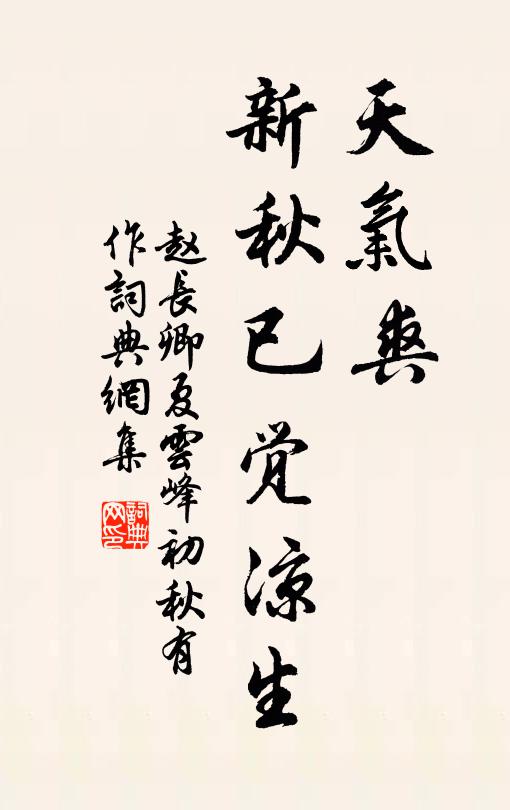 天氣爽
新秋已觉涼生
赵長卿夏雲峰初秋有
作詞典網集
詞典
网印